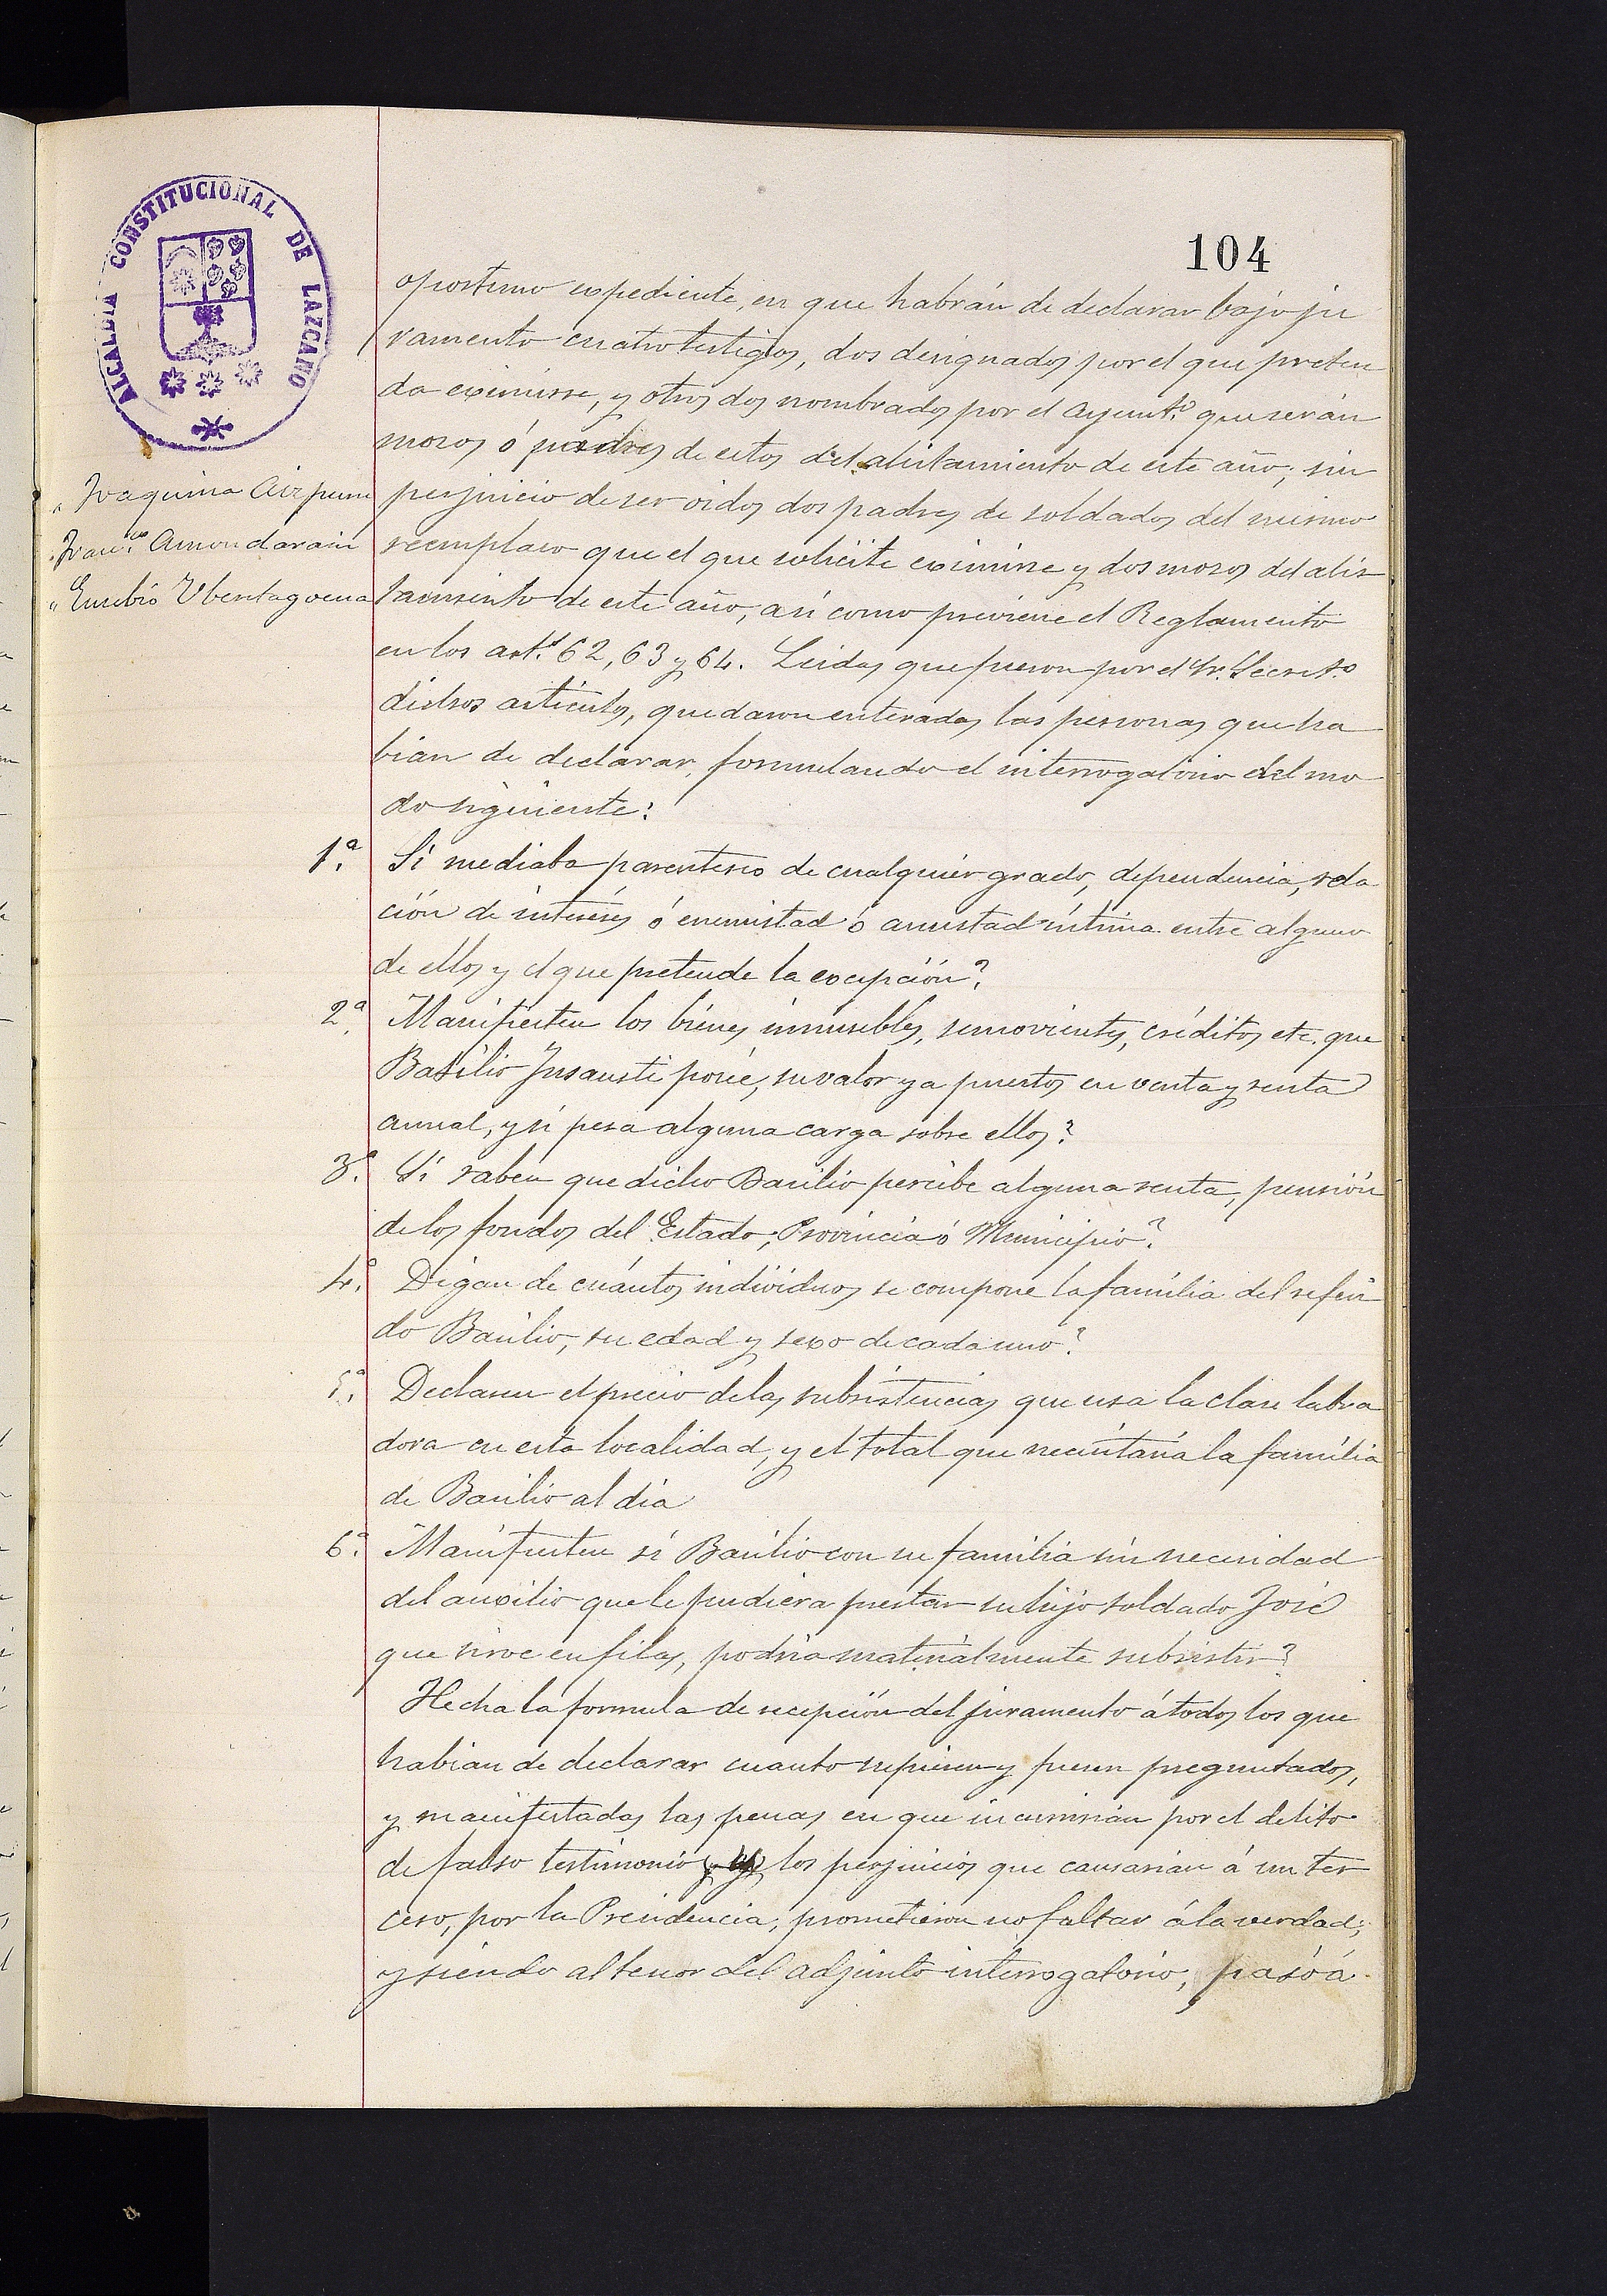 104
ALCALDIA CONSTITUCIONAL DE LAZCANO
" Joaquina
" Franco. Amondarain
" Eusebio
oportuno expediente, en que habrán de declarar bajo ju
ramento cuatro testigos, dos designados por el que preten
da eximirse, y otros dos nombrados por el Ayunto. que serán
mozos ó padres de estos del alistamiento de este año; sin
perjuicio de ser oidos dos padres de soldados del mismo
reemplazo que el que solicite eximirse y dos mozos del alis
tamiento de este año, así como previene el Reglamento
en los arts. 62, 63 y 64. Leidas que fueron por el Sr. Secreto
dichos artículos, quedaron enteradas las personas que ha
bian de declarar, formulando el interrogatorio del mo
do siguiente:
1.a Si mediaba parentesco de cualquier grado, dependencia, rela
ción de intereses ó enemistad ó amistad íntima entre alguno
de ellos y el que pretende la excepción?
2.a Manifiesten los bienes inmuebles, semovientes, créditos etc. que
Basilio Insausti posee, su valor ya puestos en venta y renta
anual, y si pesa alguna carga sobre ellos?
3.a Si saben que dicho Basilio percibe alguna renta, pensión
de los fondos del Estado, Provincia ó Municipio?
4.a Digan de cuántos individuos se compone la família del referi
do Basilio, su edad y sexo de cada uno?
5.a Declaren el precio de las subsistencias que usa la clase labra
dora en esta localidad, y el total que necesitaría la família
de Basilio al dia
6.a Manifiesten si Basilio con su familia sin necesidad
del auxilio que le pudiera prestar su hijo soldado José
que sirve en filas, podría materialmente subsistir?
Hecha la formula de recepción del juramento á todos los que
habian de declarar cuanto supiesen y fuesen preguntados,
y manifestadas las penas en que incurririan por el delito
de falso testimonio los perjuicios que causarian á un ter
cero, por la Presidencia; prometieron no faltar á la verdad;
y siendo al tenor del adjunto interrogatorio, pasó á